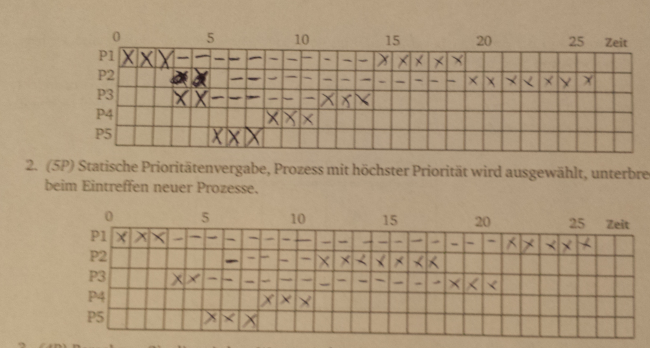 0 5 10 15 20 25 Zeit
P1 X X X – – – – – – – – – – – X X X X X
P2 – – – – – – – – – – – – – X X X X X X X
P3 X X – – – – – – X X X
P4 X X X
P5 X X X
2. (5P) Statische Prioritätenvergabe, Prozess mit höchster Priorität wird ausgewählt, unterbre
beim Eintreffen neuer Prozesse.
0 5 10 15 20 25 Zeit
P1 X X X – – – – – – – – – – – – – – – – – – X X X X X
P2 – – – – – X X X X X X X
P3 X X – – – – – – – – – – – – – X X X
P4 X X X
P5 X X X